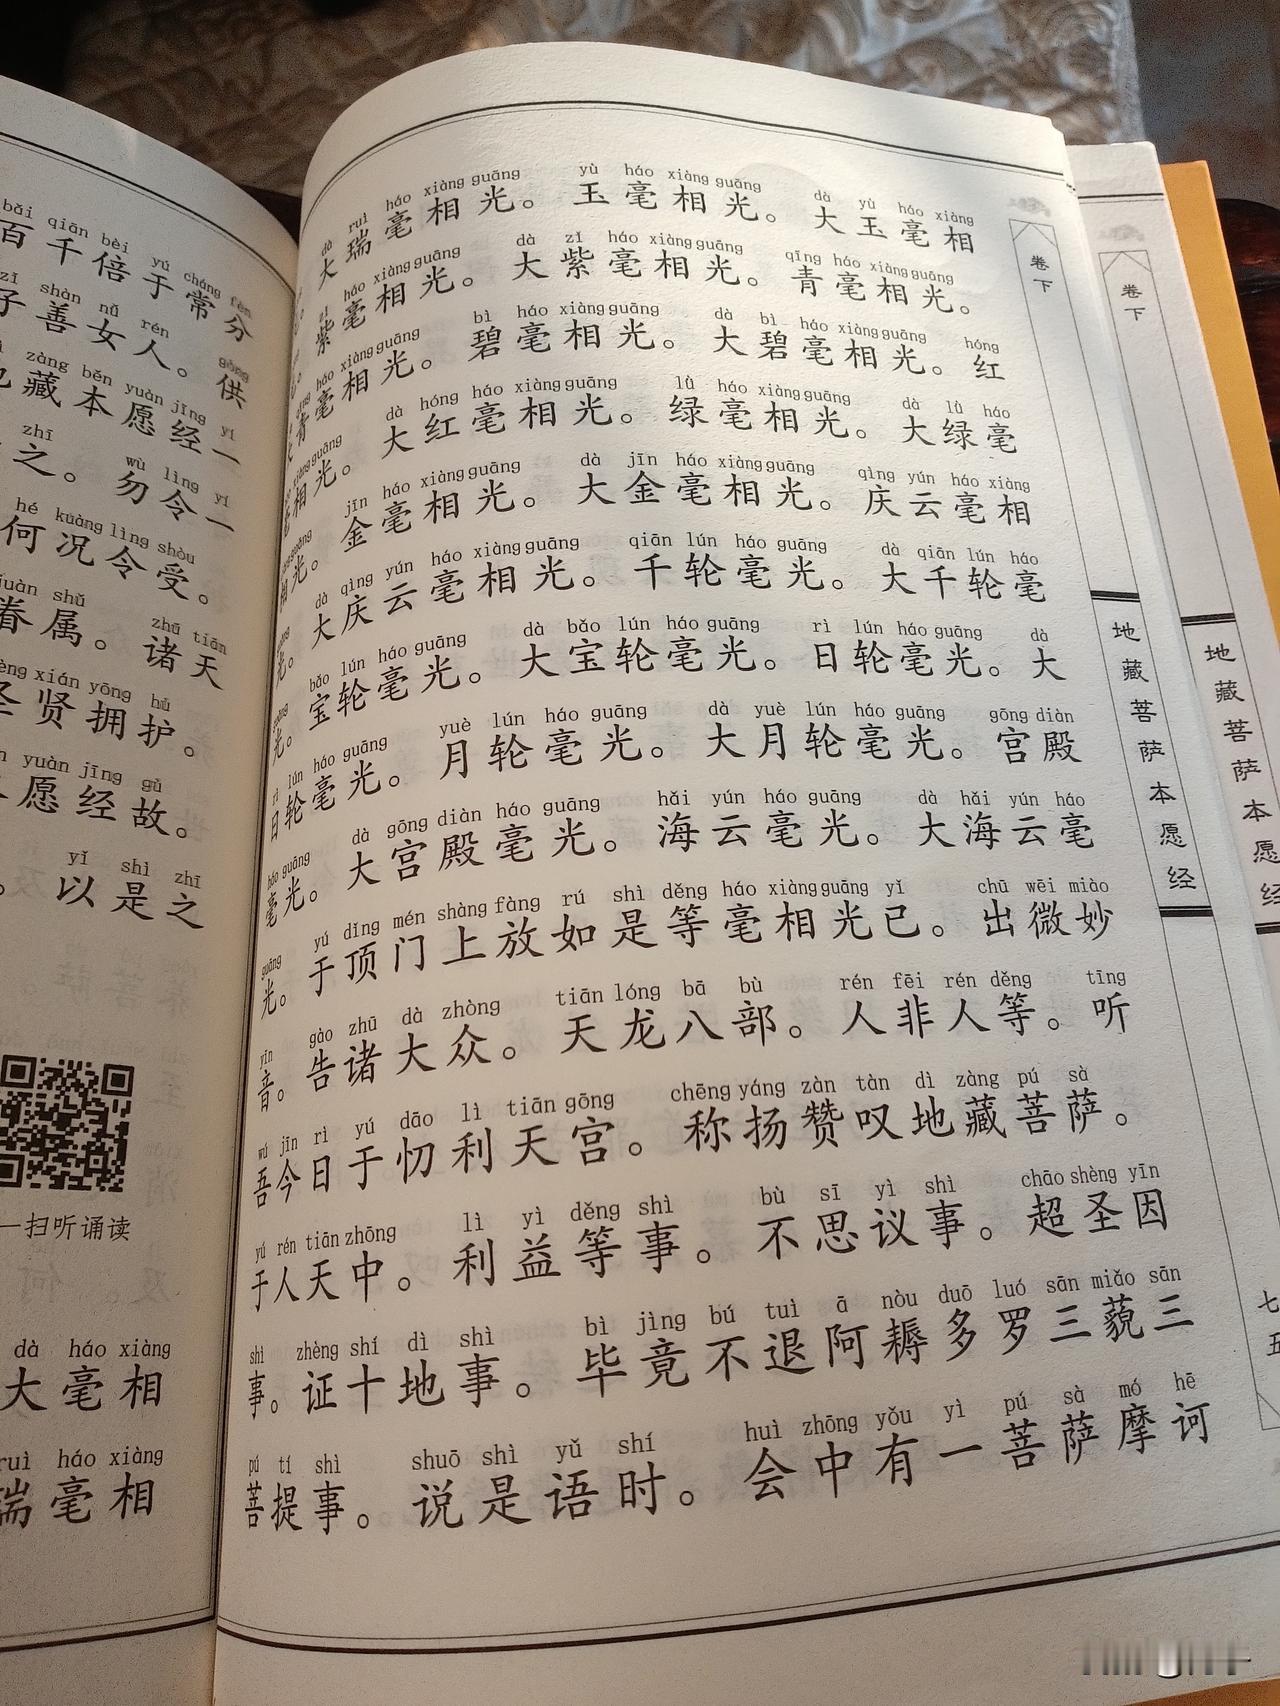 bǎi qiān bèi yú cháng fèn
百千倍于常分
zǐ shàn nǚ rén gòng
子善女人。供
zàng běn yuàn jīng yī
地藏本愿经一
zhī wù lìng yī
之。勿令一
hé kuàng lìng shòu
何况令受。
juàn shǔ zhū tiān
眷属。诸天
xián yōng hù
圣贤拥护。
yuàn jīng gù
愿经故。
yǐ shì zhī
以是之
一扫听诵读
dà háo xiàng
大毫相
ruì háo xiàng
瑞毫相
dà ruì háo xiàng guāng yù háo xiàng guāng dà yù háo xiàng
大瑞毫相光。玉毫相光。大玉毫相
zǐ háo xiàng guāng dà zǐ háo xiàng guāng qīng háo xiàng guāng
紫毫相光。大紫毫相光。青毫相光。
háo xiàng guāng bì háo xiàng guāng dà bì háo xiàng guāng hóng
青毫相光。碧毫相光。大碧毫相光。红
xiàng guāng dà hóng háo xiàng guāng lǜ háo xiàng guāng dà lǜ háo
相光。大红毫相光。绿毫相光。大绿毫
guāng jīn háo xiàng guāng dà jīn háo xiàng guāng qìng yún háo xiàng
相光。金毫相光。大金毫相光。庆云毫相
dà qìng yún háo xiàng guāng qiān lún háo guāng dà qiān lún háo
光。大庆云毫相光。千轮毫光。大千轮毫
guāng bǎo lún háo guāng dà bǎo lún háo guāng rì lún háo guāng dà
光。宝轮毫光。大宝轮毫光。日轮毫光。大
rì lún háo guāng yuè lún háo guāng dà yuè lún háo guāng gōng diàn
日轮毫光。月轮毫光。大月轮毫光。宫殿
háo guāng dà gōng diàn háo guāng hǎi yún háo guāng dà hǎi yún háo
毫光。大宫殿毫光。海云毫光。大海云毫
guāng yú dǐng mén shàng fàng rú shì děng háo xiàng guāng yǐ chū wēi miào
光。于顶门上放如是等毫相光已。出微妙
yīn gào zhū dà zhòng tiān lóng bā bù rén fēi rén děng tīng
音。告诸大众。天龙八部。人非人等。听
wú jīn rì yú dāo lì tiān gōng chēng yáng zàn tàn dì zàng pú sà
吾今日于忉利天宫。称扬赞叹地藏菩萨。
yú rén tiān zhōng lì yì děng shì bù sī yì shì chāo shèng yīn
于人天中。利益等事。不思议事。超圣因
shì zhèng shí dì shì bì jìng bú tuì ā nòu duō luó sān miǎo sān
事。证十地事。毕竟不退阿耨多罗三藐三
pú tí shì shuō shì yǔ shí huì zhōng yǒu yì pú sà mó hē
菩提事。说是语时。会中有一菩萨摩诃
卷下
地藏菩萨本愿经
卷下
地藏菩萨本愿经
七五